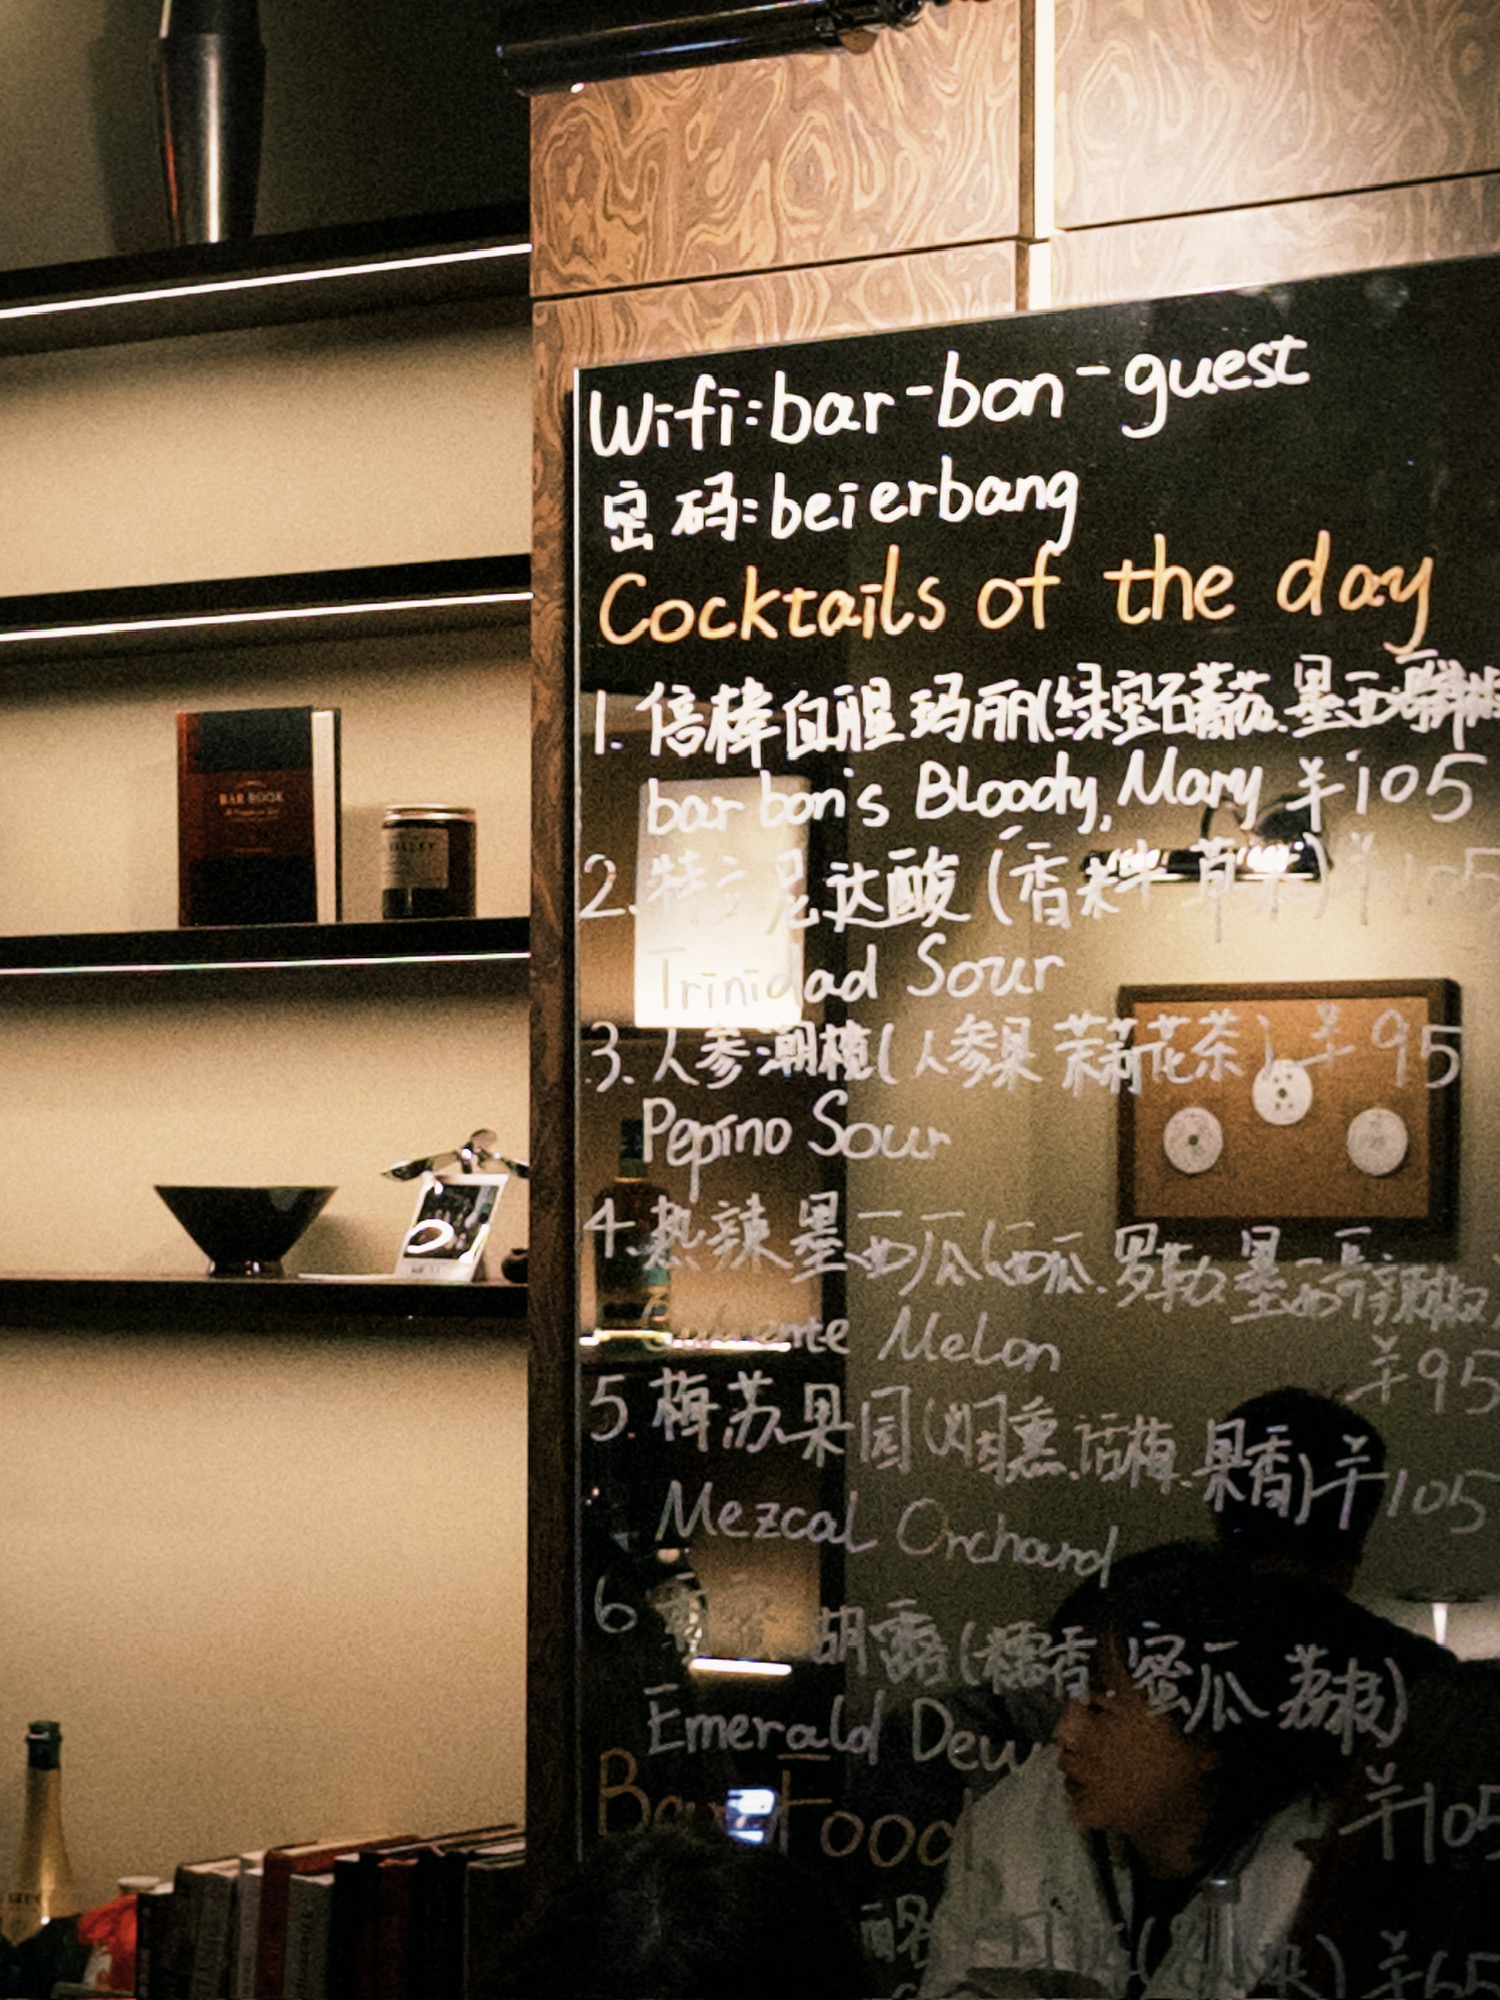 Wifi:bar-bon-guest
密码:beierbang
Cocktails of the day
1. 倍棒血腥玛丽(绿宝石蕃茄.墨西哥辣椒
bar bon's Bloody Mary ¥105
2. 特立尼达酸 (香米牛 草 ) ¥105
Trinidad Sour
3. 人参潮榄(人参果 茉莉花茶) ¥95
Pepino Sour
4. 热辣墨西瓜(西瓜.罗勒.墨西哥辣椒)
Melon
¥95
5. 梅苏果园(烟熏.话梅.果香)¥105
Mezcal Orchard
6 胡露(糯香.蜜瓜 荔枝)
Emerald Dew
¥105
Bar Food
酪
¥65
BAR BOOK